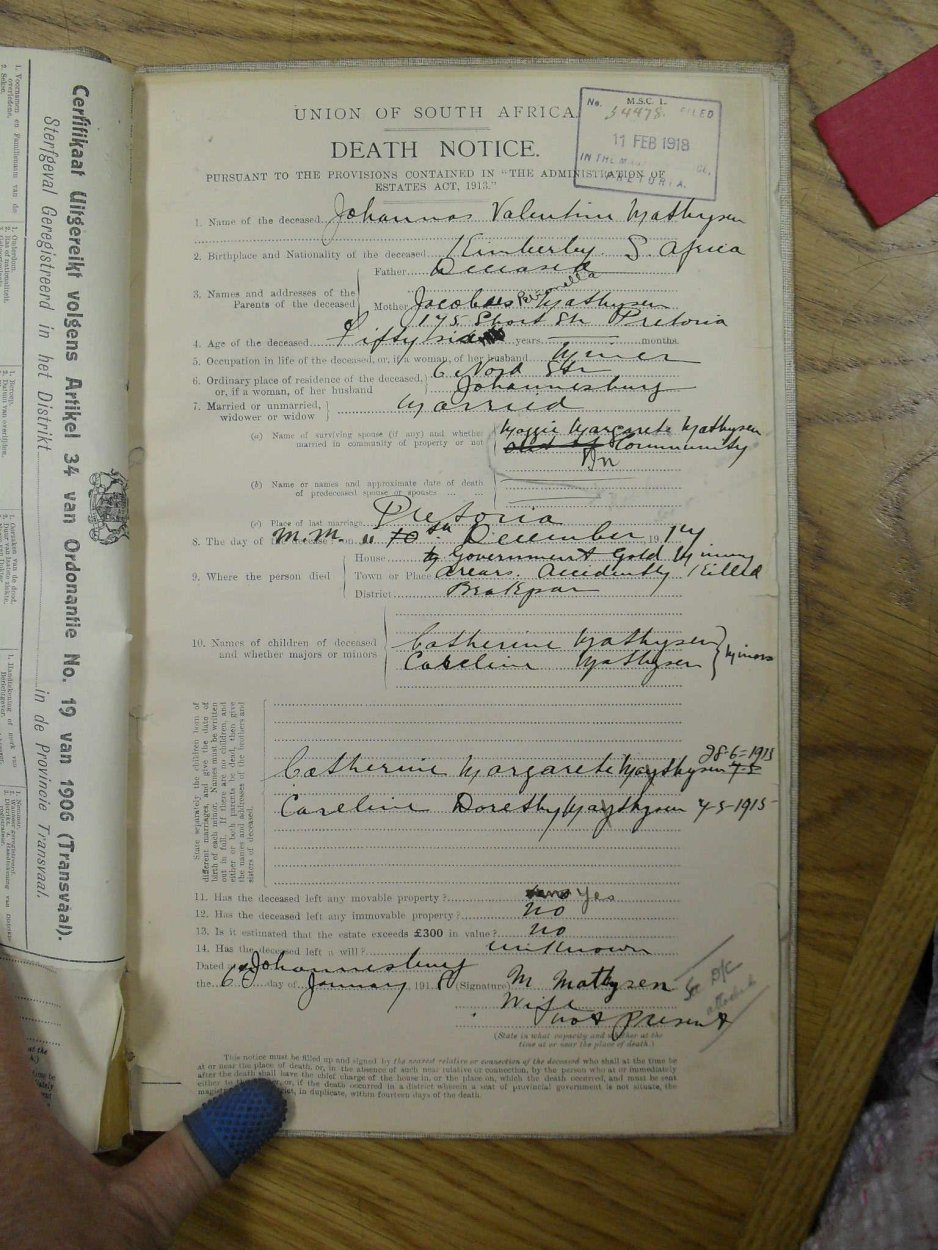 Certifikaat Uitgereikt volgens Artikel 34 van Ordonantie No. 19 van 1906 (Transvaal).
Sterfgeval Geregistreerd in het Distrikt ............ in de Provincie Transvaal.
M.S.C. 1.
No. 34478. FILED
11 FEB 1918
IN THE
PRETORIA.
UNION OF SOUTH AFRICA
DEATH NOTICE.
PURSUANT TO THE PROVISIONS CONTAINED IN "THE ADMINISTRATION OF
ESTATES ACT, 1913."
1. Name of the deceased Johannas Valentine Mathysen
2. Birthplace and Nationality of the deceased Kimberley S. Africa
Father Deceased
3. Names and addresses of the
Parents of the deceased
Mother Jacobus Petronella Mathysen
175 Short Str Pretoria
4. Age of the deceased Fifty years, months.
5. Occupation in life of the deceased, or, if a woman, of her husband Miner
6. Ordinary place of residence of the deceased,
or, if a woman, of her husband
6 Nord Str
Johannesburg
7. Married or unmarried,
widower or widow
Married
(a) Name of surviving spouse (if any) and whether
married in community of property or not
Maggie Margarete Mathysen
Community
In
(b) Name or names and approximate date of death
of predeceased spouse or spouses ... ...
(c) Place of last marriage Pretoria
8. The day of the decease: on M.M. 10th December 1917
House Government Gold Mining
9. Where the person died
Town or Place areas. Accidently Killed
District Brakpan
10. Names of children of deceased
and whether majors or minors
Catherine Mathysen
Careline Mathysen
Minors
State separately the children born of
different marriages, and give the date of
birth of each minor. Names must be written
out in full. If there are no children, and
either or both parents be dead, then give
the names and addresses of the brothers and
sisters of deceased.
28-6-1913
Catherine Margarete Maythysen
Careline Dorethy Maythysen 4-5-1915
11. Has the deceased left any movable property? Yes
12. Has the deceased left any immovable property? No
13. Is it estimated that the estate exceeds £300 in value? No
14. Has the deceased left a will? Unknown
Dated at Johannesburg
the 6 day of January, 1918 (Signature) M Mathysen
Wife
not present
See D/C
attached
(State in what capacity and whether at the
time at or near the place of death.)
This notice must be filled up and signed by the nearest relative or connection of the deceased who shall at the time be
at or near the place of death, or, in the absence of such near relative or connection, by the person who at or immediately
after the death shall have the chief charge of the house in, or the place on, which the death occurred, and must be sent
either to the or, if the death occurred in a district wherein a seat of provincial government is not situate, the
in duplicate, within fourteen days of the death.